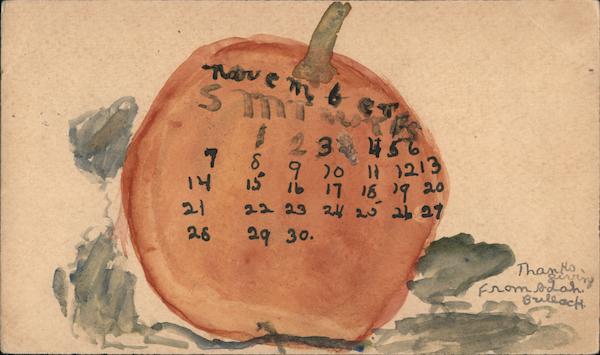 november
S M T W T F S
1 2 3 4 5 6
7 8 9 10 11 12 13
14 15 16 17 18 19 20
21 22 23 24 25 26 27
28 29 30.
Thanks
giving
From Adah
Bullock